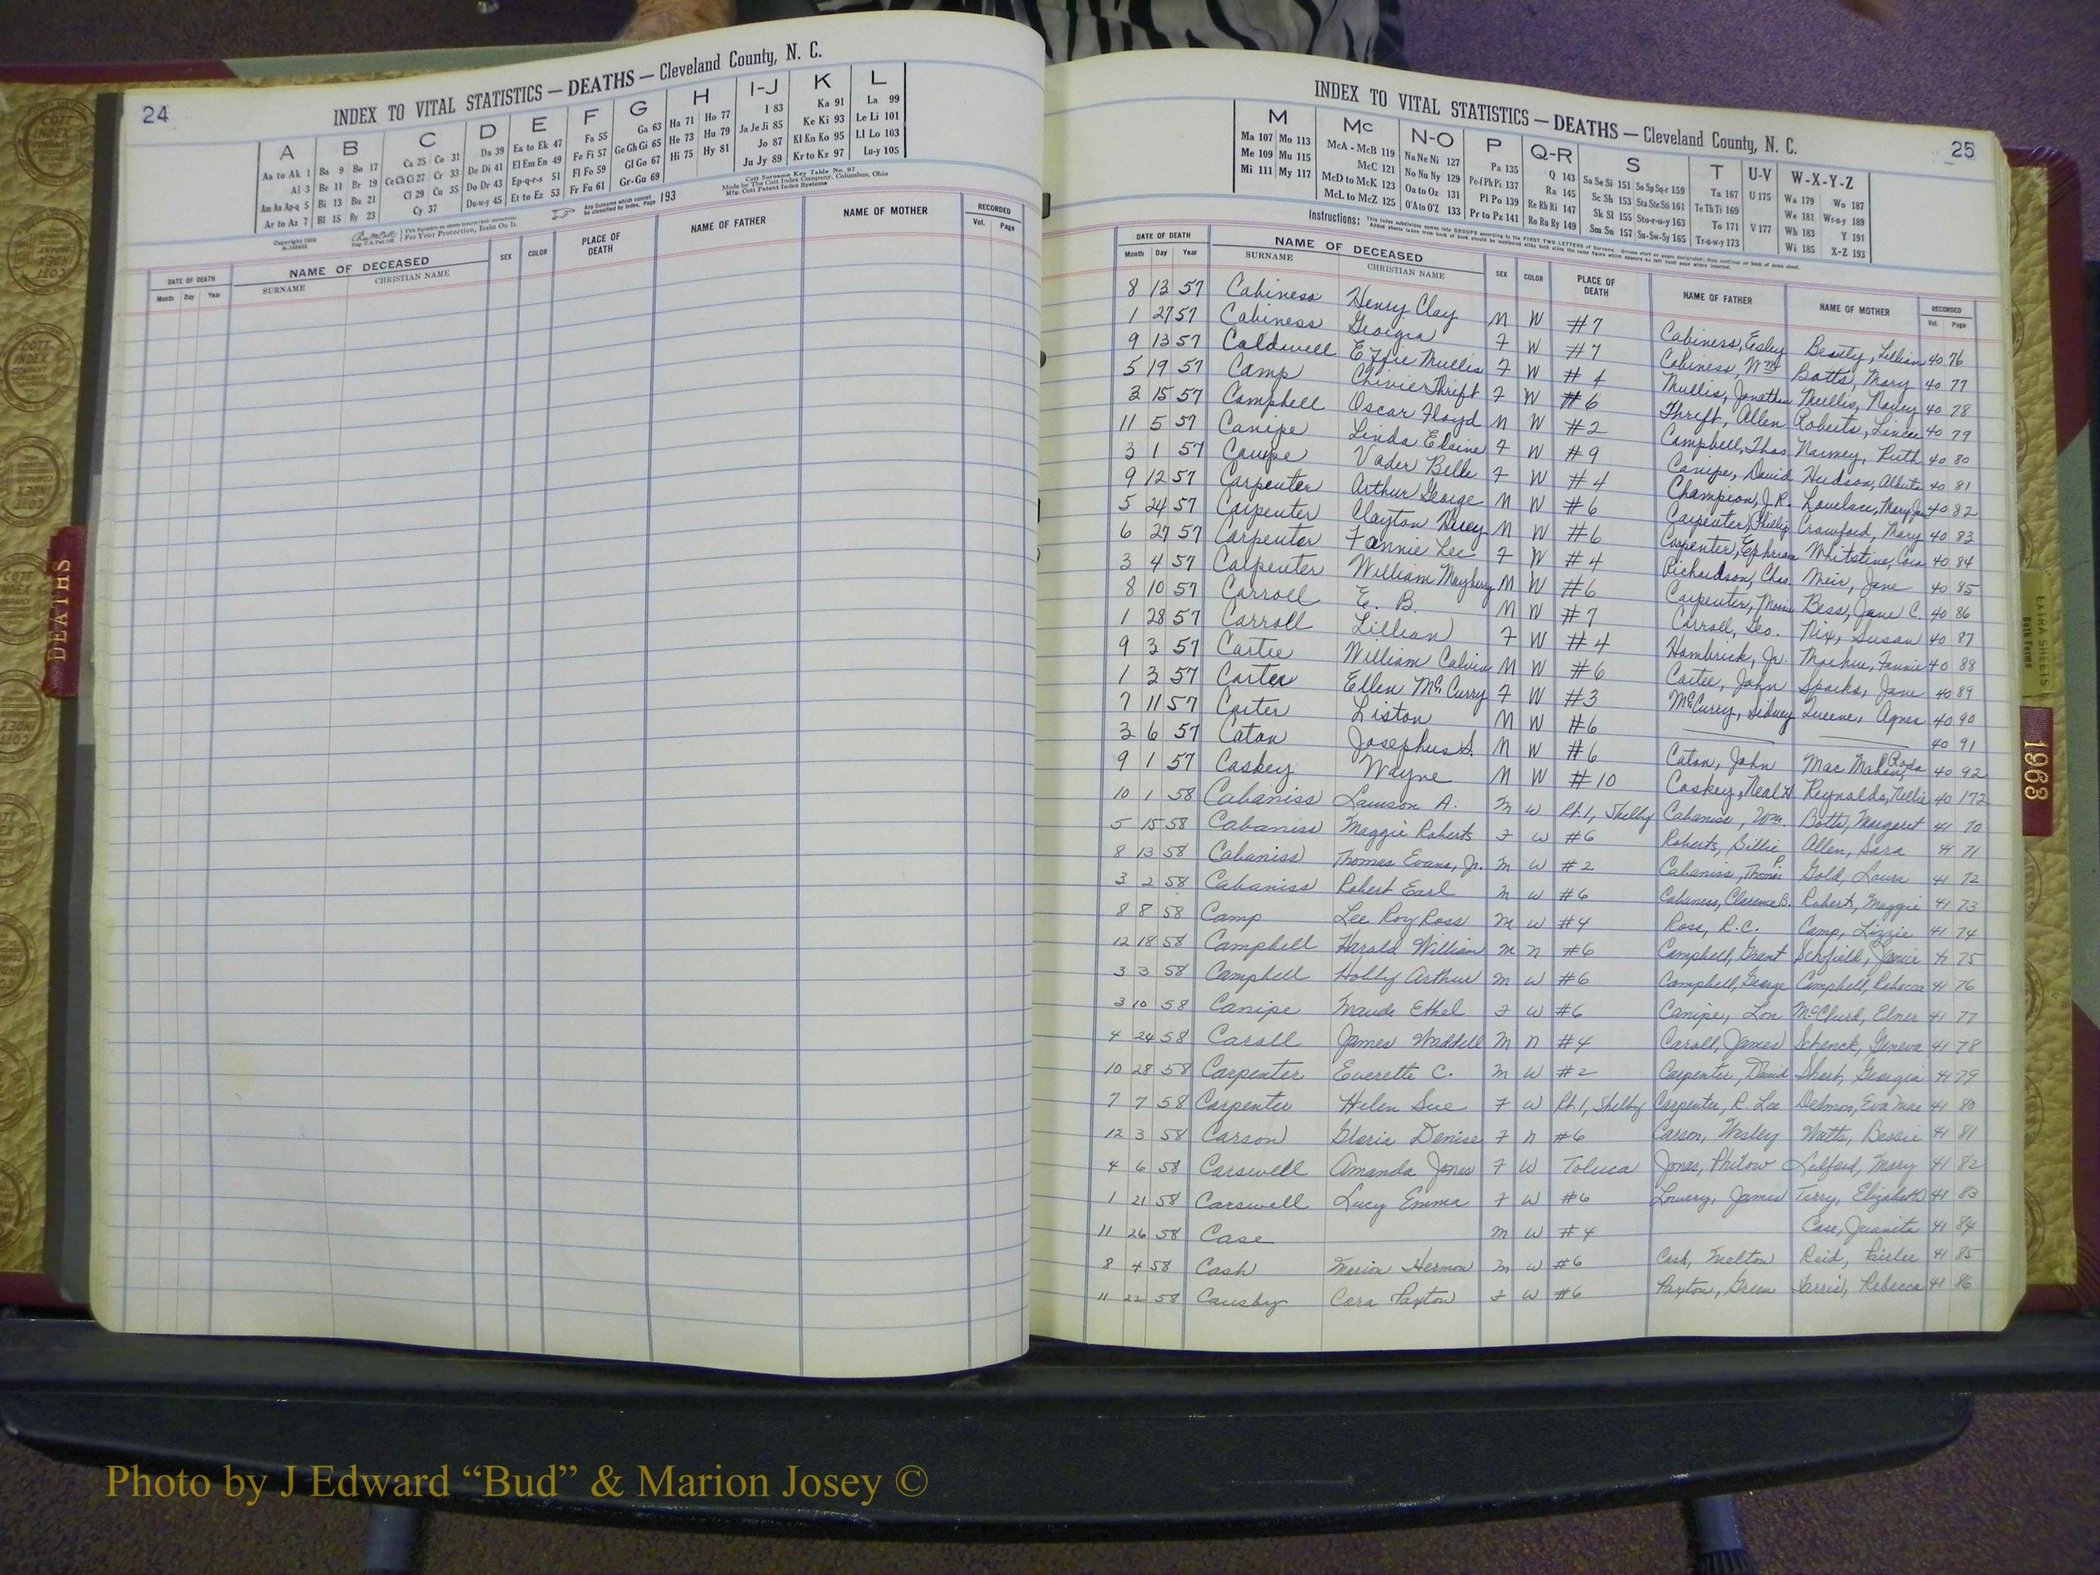 24
INDEX TO VITAL STATISTICS — DEATHS — Cleveland County, N. C.
A B C D E F G H I-J K L
Aa to Ak 1 Ba 9 Bo 17 Ca 25 Co 31 Da 39 Ea to Ek 47 Fa 55 Ga 63 Ha 71 Ho 77 I 83 Ka 91 La 99
Al 3 Be 11 Br 19 Ce Ch Ci 27 Cr 33 De Di 41 El Em En 49 Fe Fi 57 Ge Gh Gi 65 He 73 Hu 79 Ja Je Ji 85 Ke Ki 93 Le Li 101
Am An Ap-q 5 Bi 13 Bu 21 Cl 29 Cu 35 Do Dr 43 Ep-q-r-s 51 Fl Fo 59 Gl Go 67 Hi 75 Hy 81 Jo 87 Kl Kn Ko 95 Ll Lo 103
Ar to Az 7 Bl 15 By 23 Cy 37 Du-w-y 45 Et to Ez 53 Fr Fu 61 Gr-Gu 69 Ju Jy 89 Kr to Kz 97 Lu-y 105
Any Surname which cannot be classified by Index, Page 193
Cott Surname Key Table No. 97
Made by The Cott Index Company, Columbus, Ohio
Mfg. Cott Patent Index Systems
For Your Protection, Insist On It.
DATE OF DEATH NAME OF DECEASED SEX COLOR PLACE OF DEATH NAME OF FATHER NAME OF MOTHER RECORDED
Month Day Year SURNAME CHRISTIAN NAME Vol. Page
DEATHS
INDEX TO VITAL STATISTICS — DEATHS — Cleveland County, N. C.
25
M Mc N-O P Q-R S T U-V W-X-Y-Z
Ma 107 Mo 113 McA - McB 119 Na Ne Ni 127 Pa 135 Q 143 Sa Se Si 151 So Sp Sq-r 159 Ta 167 U 175 Wa 179 Wo 187
Me 109 Mu 115 McC 121 No Nu Ny 129 Pe-f Ph Pi 137 Ra 145 Sc Sh 153 Sta Ste Sti 161 Te Th Ti 169 We 181 Wr-u-y 189
Mi 111 My 117 McD to McK 123 Oa to Oz 131 Pl Po 139 Re Rh Ri 147 Sk Sl 155 Sto-r-u-y 163 To 171 V 177 Wh 183 Y 191
McL to McZ 125 O'A to O'Z 133 Pr to Pz 141 Ro Ru Ry 149 Sm Sn 157 Su-Sw-Sy 165 Tr-u-w-y 173 Wi 185 X-Z 193
DATE OF DEATH NAME OF DECEASED SEX COLOR PLACE OF DEATH NAME OF FATHER NAME OF MOTHER RECORDED
Month Day Year SURNAME CHRISTIAN NAME Vol. Page
8 13 57 Cabiness Henry Clay M W #7 Cabiness, Esley Beauty, Lillian 40 76
1 27 57 Cabiness Georgia F W #7 Cabiness, Wm Botts, Mary 40 77
9 13 57 Caldwell Effie Mullis F W Mullis, Jonathan Mullis, Nancy 40 78
5 19 57 Camp Thrift F W #6 Thrift, Allen Roberts, 40 79
3 15 57 Campbell Oscar Floyd M W #2 Campbell, Thos. Ruth 40 80
11 5 57 Canipe Linda Elaine F W #9 Canipe, David Hudson, 40 81
3 1 57 Canipe Vader Belle F W #4 Champion, J. R. Lovelace, Mary Jane 40 82
9 12 57 Carpenter Arthur George M W #6 Carpenter, Phillip Crawford, Mary 40 83
5 24 57 Carpenter Clayton M W #6 Carpenter, Ephriam Whitstine, Cora 40 84
6 27 57 Carpenter Fannie Lee F W #4 Richardson, Chas. Jane 40 85
3 4 57 Carpenter William Mayberry M W #6 Carpenter, Bess, Jane C. 40 86
8 10 57 Carroll E. B. M W #7 Carroll, Geo. Nix, Susan 40 87
1 28 57 Carroll Lillian F W #4 Hambrick, Jr. Fannie 40 88
9 3 57 Cartee William Calvin M W #6 Cartee, John Sparks, Jane 40 89
1 3 57 Carter Edlen McCurry F W #3 McCurry, Sidney Queene, Agnes 40 90
7 11 57 Carter Liston M W #6 40 91
3 6 57 Caton Josephus S. M W #6 Caton, John Mac Mahan, Roda 40 92
9 1 57 Caskey Wayne M W #10 Caskey, Neal H Reynolds, Nellie 40 172
10 1 58 Cabaniss Lawson A. M W Rt. 1, Shelby Cabaniss, Wm. Botts, Margaret 41 70
5 15 58 Cabaniss Maggie Roberts F W #6 Roberts, Billie Allen, Sara 41 71
8 13 58 Cabaniss Thomas Evans, Jr. M W #2 Cabaniss, Thomas P. Gold, Laura 41 72
3 2 58 Cabaniss Robert Earl M W #6 Cabaness, Clarence B. Roberts, Maggie 41 73
8 8 58 Camp Lee Roy Ross M W #4 Ross, R. C. Camp, Lizzie 41 74
12 18 58 Campbell Harold William M N #6 Campbell, Grant Schofield, Janice 41 75
3 3 58 Campbell Hobby Arthur M W #6 Campbell, George Campbell, Rebecca 41 76
3 10 58 Canipe Maude Ethel F W #6 Canipe, Lon McClurd, Elner 41 77
4 24 58 Caroll James Waddell M N #4 Caroll, James Schenck, Geneva 41 78
10 28 58 Carpenter Everette C. M W #2 Carpenter, David Short, Georgia 41 79
7 7 58 Carpenter Helen Sue F W Rt. 1, Shelby Carpenter, R. Lee Delmon, Eva Mae 41 80
12 3 58 Carson Gloria Denise F N #6 Carson, Wesley Watts, Bessie 41 81
4 6 58 Carswell Amanda Jones F W Toluca Jones, Philow Ledford, Mary 41 82
1 21 58 Carswell Lucy Emma F W #6 Lowery, James Terry, Elizabeth 41 83
11 26 58 Case M W #4 Case, Juanita 41 84
8 4 58 Cash Marion Hermon M W #6 Cash, Melton Reid, 41 85
11 22 58 Causby Cora Paxton F W #6 Paxton, Green Farris, Rebecca 41 86
EXTRA SHEETS
1963
Photo by J Edward “Bud” & Marion Josey ©